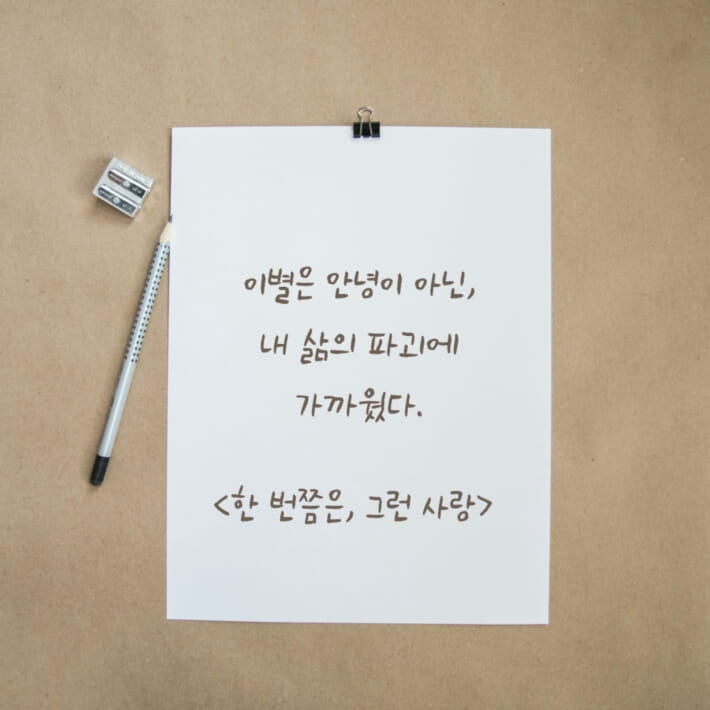 이별은 안녕이 아닌,
내 삶의 파괴에
가까웠다.
<한 번쯤은, 그런 사랑>